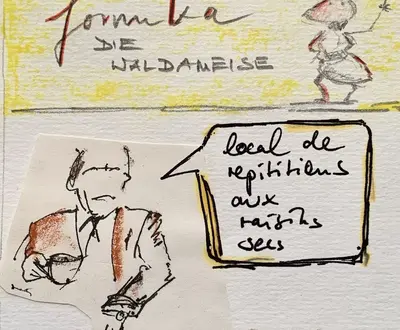 formika
DIE
WALDAMEISE
local de
repititions
aux
raisins
secs